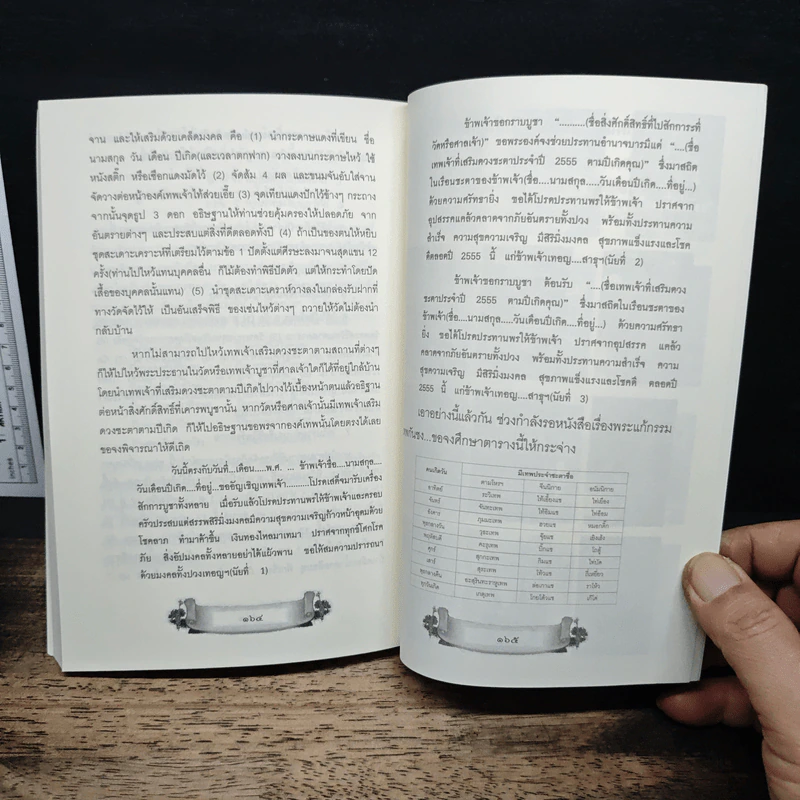 จาน และให้เสริมด้วยเคล็ดมงคล คือ (1) นำกระดาษแดงที่เขียน ชื่อ
นามสกุล วัน เดือน ปีเกิด(และเวลาตกฟาก) วางลงบนกระดาษไหว้ ใช้
หนังสติ๊ก หรือเชือกแดงมัดไว้ (2) จัดส้ม 4 ผล และขนมจันอับใส่จาน
จัดวางต่อหน้าองค์เทพเจ้าไท้ส่วยเอี๊ย (3) จุดเทียนแดงปักไว้ข้างๆ กระถาง
จากนั้นจุดธูป 3 ดอก อธิษฐานให้ท่านช่วยคุ้มครองให้ปลอดภัย จาก
อันตรายต่างๆ และประสบแต่สิ่งที่ดีตลอดทั้งปี (4) ถ้าเป็นของตนให้หยิบ
ชุดสะเดาะเคราะห์ที่เตรียมไว้ตามข้อ 1 ปัดตั้งแต่ศีรษะลงมาจนสุดแขน 12
ครั้ง(ท่านไปไหว้แทนบุคคลอื่น ก็ไม่ต้องทำพิธีปัดตัว แต่ให้กระทำโดยปัด
เสื้อของบุคคลนั้นแทน) (5) นำชุดสะเดาะเคราะห์วางลงในกล่องรับฝากที่
ทางวัดจัดไว้ให้ เป็นอันเสร็จพิธี ของเซ่นไหว้ต่างๆ ถวายให้วัดไม่ต้องนำ
กลับบ้าน
หากไม่สามารถไปไหว้เทพเจ้าเสริมดวงชะตาตามสถานที่ต่างๆ
ก็ให้ไปไหว้พระประธานในวัดหรือเทพเจ้าบูชาที่ศาลเจ้าใดก็ได้ที่อยู่ใกล้บ้าน
โดยนำเทพเจ้าที่เสริมดวงชะตาตามปีเกิดไปวางไว้เบื้องหน้าตนแล้วอธิฐาน
ต่อหน้าสิ่งศักดิ์สิทธิ์ที่เคารพบูชานั้น หากวัดหรือศาลเจ้านั้นมีเทพเจ้าเสริม
ดวงชะตาตามปีเกิด ก็ให้ไปอธิษฐานขอพรจากองค์เทพนั้นโดยตรงได้เลย
ขอจงพิจารณาให้ดีเถิด
วันนี้ตรงกับวันที่...เดือน.....พ.ศ. ... ข้าพเจ้าชื่อ...นามสกุล....
วันเดือนปีเกิด....ที่อยู่...ขออัญเชิญเทพเจ้า.......โปรดเสด็จมารับเครื่อง
สักการบูชาทั้งหลาย เมื่อรับแล้วโปรดประทานพรให้ข้าพเจ้าและครอบ
ครัวประสบแต่สรรพสิริมิ่งมงคลมีความสุขความเจริญก้าวหน้าอุดมด้วย
โชคลาภ ทำมาค้าขึ้น เงินทองไหลมาเทมา ปราศจากทุกข์โศกโรค
ภัย สิ่งอัปมงคลทั้งหลายอย่าได้แผ้วพาน ขอให้สมความปรารถนา
ด้วยมงคลทั้งปวงเทอญฯ(นัยที่ 1)
๑๖๔
ข้าพเจ้าขอกราบบูชา "..........(ชื่อสิ่งศักดิ์สิทธิ์ที่ไปสักการะที่
วัดหรือศาลเจ้า)" ขอพระองค์จงช่วยประทานอำนาจบารมีแด่ "....(ชื่อ
เทพเจ้าที่เสริมดวงชะตาประจำปี 2555 ตามปีเกิดคุณ)" ซึ่งมาสถิต
ในเรือนชะตาของข้าพเจ้า(ชื่อ....นามสกุล.....วันเดือนปีเกิด....ที่อยู่...)
ด้วยความศรัทธายิ่ง ขอได้โปรดประทานพรให้ข้าพเจ้า ปราศจาก
อุปสรรคแคล้วคลาดจากภัยอันตรายทั้งปวง พร้อมทั้งประทานความ
สำเร็จ ความสุขความเจริญ มีสิริมิ่งมงคล สุขภาพแข็งแรงและโชค
ดีตลอดปี 2555 นี้ แก่ข้าพเจ้าเทอญ....สาธุฯ(นัยที่ 2)
ข้าพเจ้าขอกราบบูชา ต้อนรับ "....(ชื่อเทพเจ้าที่เสริมดวง
ชะตาประจำปี 2555 ตามปีเกิดคุณ)" ซึ่งมาสถิตในเรือนชะตาของ
ข้าพเจ้า(ชื่อ....นามสกุล.....วันเดือนปีเกิด....ที่อยู่...) ด้วยความศรัทธา
ยิ่ง ขอได้โปรดประทานพรให้ข้าพเจ้า ปราศจากอุปสรรค แคล้ว
คลาดจากภัยอันตรายทั้งปวง พร้อมทั้งประทานความสำเร็จ ความ
สุขความเจริญ มีสิริมิ่งมงคล สุขภาพแข็งแรงและโชคดี ตลอดปี
2555 นี้ แก่ข้าพเจ้าเทอญ....สาธุฯ(นัยที่ 3)
เธออย่างนี้แล้วกัน ช่วงกำลังรอหนังสือเรื่องพระแก้กรรม
...ขอจงศึกษาตารางนี้ให้กระจ่าง
คนเกิดวัน มีเทพประจำชะตาชื่อ
ตามไทยฯ จีนนิกาย อนัมนิกาย
อาทิตย์ ระวิเทพ
จันทร์ จันทเทพ
อังคาร ภุมมะเทพ
พุธกลางวัน วุธะเทพ
พฤหัสบดี
ศุกร์ ศุกระเทพ
เสาร์
พุธกลางคืน
๑๖๕
inches